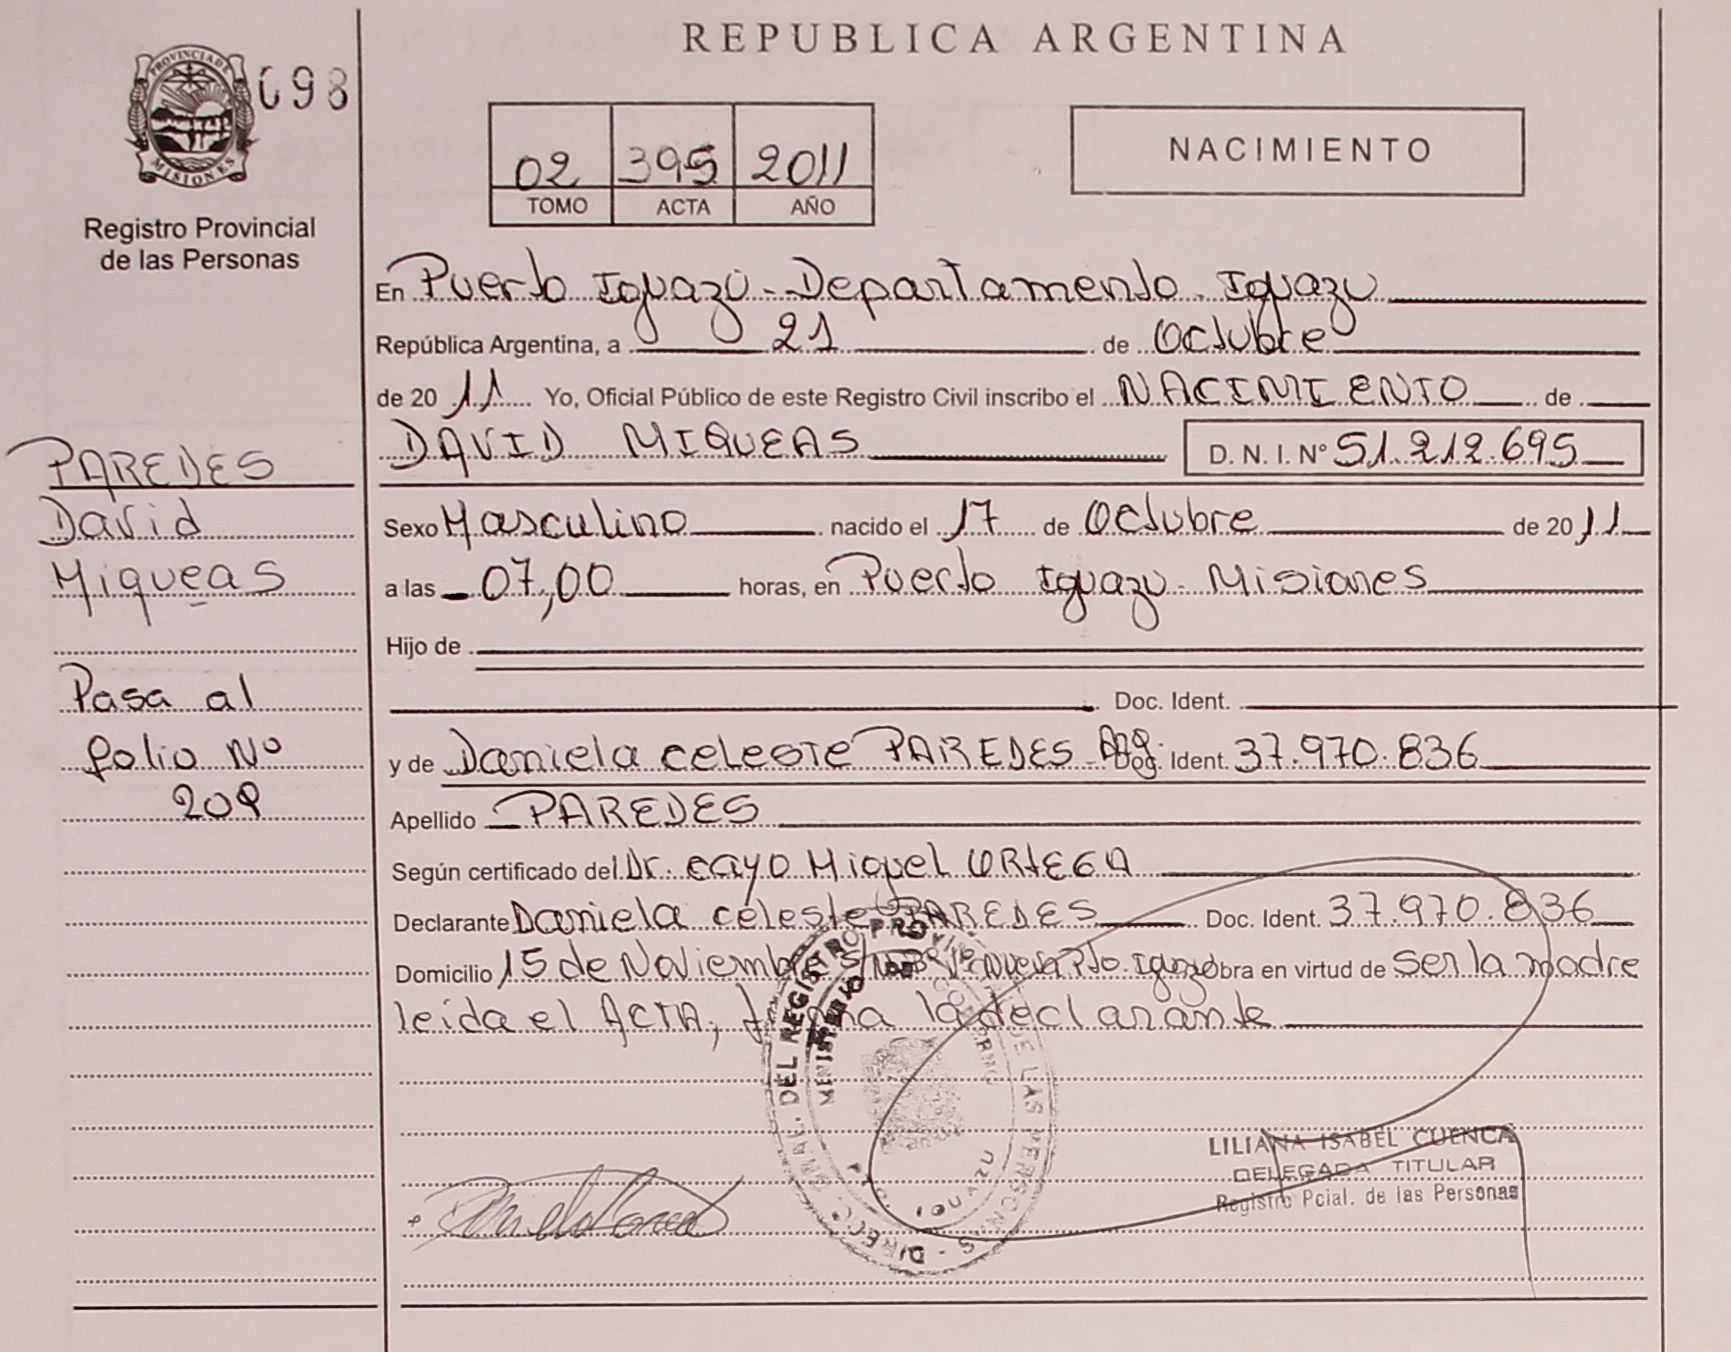 REPUBLICA ARGENTINA
PROVINCIA DE
MISIONES
098
Registro Provincial
de las Personas
02 395 2011
TOMO ACTA AÑO
NACIMIENTO
En Puerto Iguazú - Departamento Iguazu
República Argentina, a 21 de Octubre
de 2011 Yo, Oficial Público de este Registro Civil inscribo el NACIMIENTO de
DAVID MIQUEAS D. N. I. Nº 51.212.695
PAREDES
David
Miqueas
Sexo Masculino nacido el 17 de Octubre de 2011
a las 07,00 horas, en Puerto Iguazu - Misiones
Hijo de
Doc. Ident.
Pasa al
folio Nº
209
y de Daniela celeste PAREDES - Arg. Doc. Ident. 37.970.836
Apellido PAREDES
Según certificado del Dr. cayo Miguel ORTEGA
Declarante Daniela celeste PAREDES Doc. Ident. 37.970.836
Domicilio 15 de Noviembre S/N Bº Vª Nueva Pto. Iguazú obra en virtud de ser la madre
leída el ACTA, firma la declarante
DIRECC. GRAL. DEL REGISTRO PROVINCIAL DE LAS PERSONAS
MINISTERIO DE GOBIERNO
PTO. IGUAZU
LILIANA ISABEL CUENCA
DELEGADA TITULAR
Registro Pcial. de las Personas